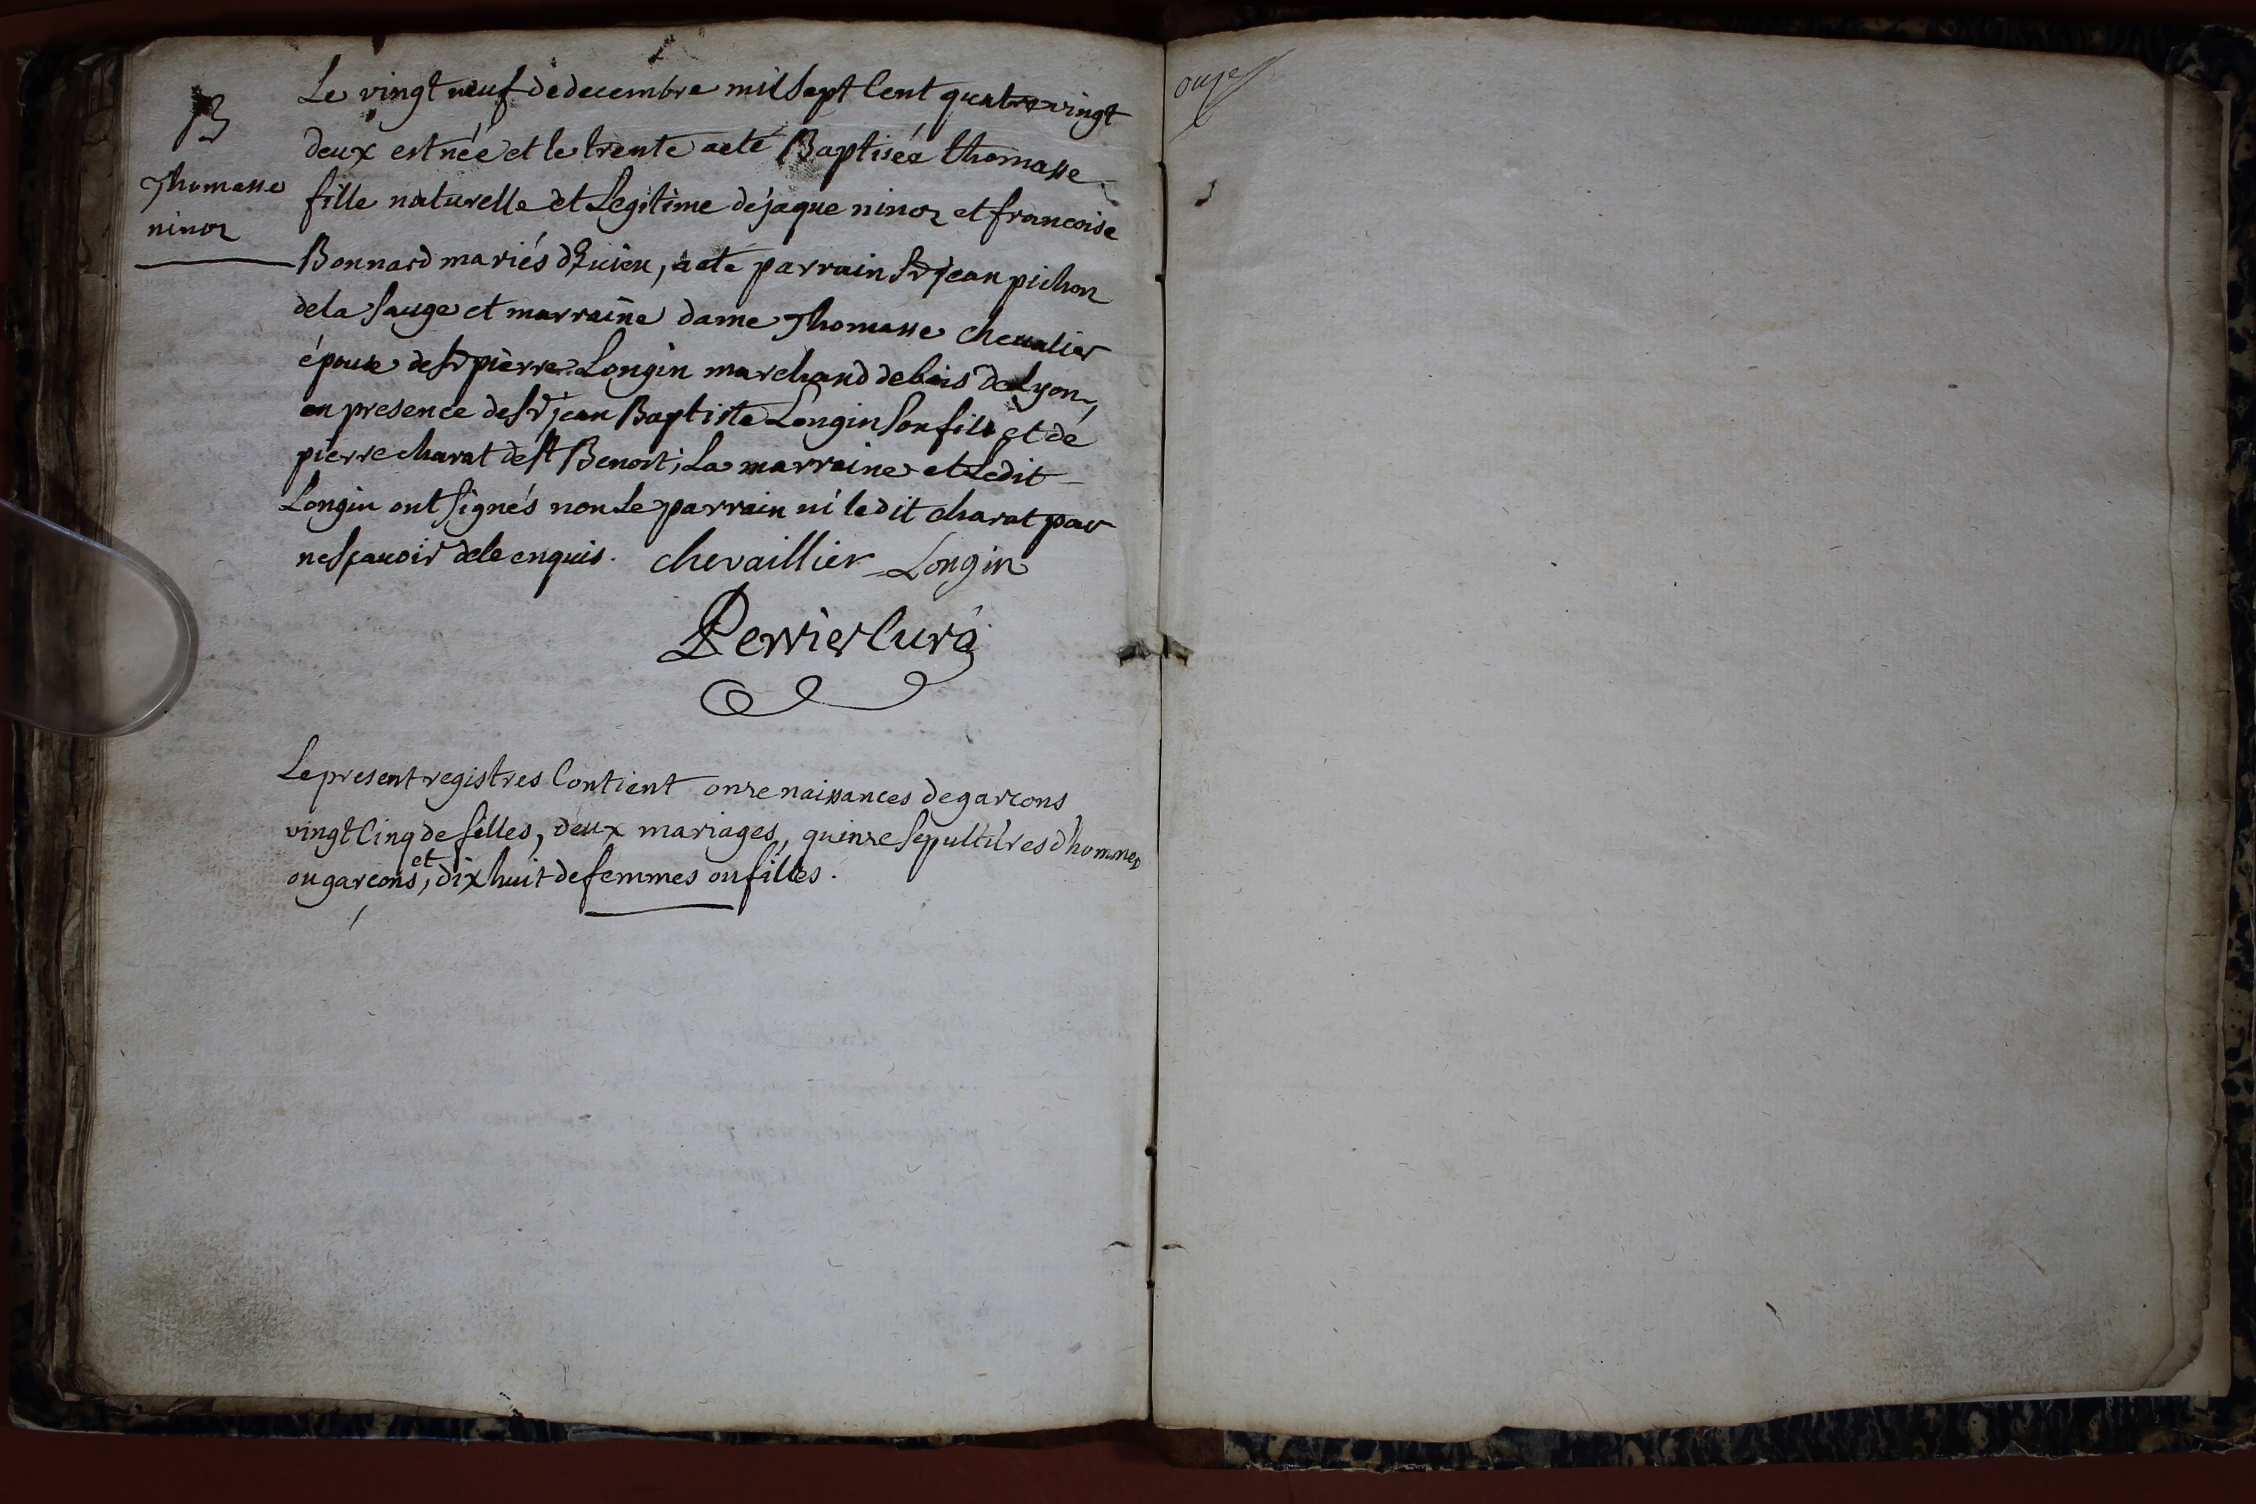 B
Thomasse
ninoz
Le vingt neuf de decembre mil Sept Cent quatre vingt
deux est née et le trente a eté Baptisée thomasse
fille naturelle et Legitime de jaque ninoz et francoise
Bonnard mariés d'Ecuieu, a eté parrain Sr jean pichon
de la Sauge et marraine dame Thomasse chevalier
épouse de Sr pierre Longin marchand de bois de Lyon,
en presence de Sr jean Baptiste Longin Son fils et de
pierre charat de St Benoit; La marraine et Ledit
Longin ont Signés non Le parrain ni ledit charat pour
ne Sçavoir de ce enquis. chevaillier Longin
Perrier Curé
Le present registres Contient onze naissances de garcons
vingt Cinq de filles, deux mariages, quinze Sepultures d'hommes
ou garcons, et dix huit de femmes ou filles.
onze